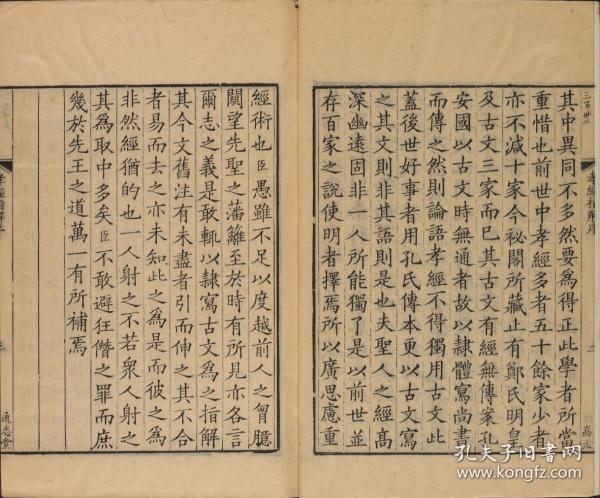 其中異同不多然要爲得正此學者所當
重惜也前世中孝經多者五十餘家少者
亦不減十家今祕閣所藏止有鄭氏明皇
及古文三家而已其古文有經無傳案孔
安國以古文時無通者故以隷體寫尚書
而傳之然則論語孝經不得獨用古文此
蓋後世好事者用孔氏傳本更以古文寫
之其文則非其語則是也夫聖人之經高
深幽遠固非一人所能獨了是以前世並
存百家之說使明者擇焉所以廣思慮重
三百廿三
孝經指解序
二
經術也臣愚雖不足以度越前人之胷臆
闚望先聖之藩籬至於時有所見亦各言
爾志之義是敢輒以隷寫古文爲之指解
其今文舊注有未盡者引而伸之其不合
者易而去之亦未知此之爲是而彼之爲
非然經猶的也一人射之不若衆人射之
其爲取中多矣臣不敢避狂僭之罪而庶
幾於先王之道萬一有所補焉
孝經指解序
三
通志堂
孔夫子旧书网
www.kongfz.com